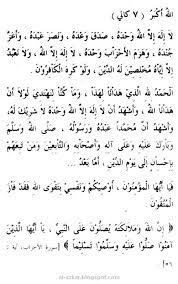 اللهُ أَكْبَرُ ( ٧ كالي )
لَا إِلَهَ إِلَّا اللهُ وَحْدَهُ ، صَدَقَ وَعْدَهُ ، وَنَصَرَ عَبْدَهُ ، وَأَعَزَّ
جُنْدَهُ ، وَهَزَمَ الْأَحْزَابَ وَحْدَهُ ، لَا إِلَهَ إِلَّا اللهُ ، وَلَا نَعْبُدُ
إِلَّا إِيَّاهُ مُخْلِصِينَ لَهُ الدِّينَ ، وَلَوْ كَرِهَ الْكَافِرُونَ .
الْحَمْدُ لِلهِ الَّذِي هَدَانَا لِهَذَا وَمَا كُنَّا لِنَهْتَدِيَ لَوْلَا أَنْ
هَدَانَا اللهُ ، وَأَشْهَدُ أَنْ لَا إِلَهَ إِلَّا اللهُ وَحْدَهُ لَا شَرِيكَ لَهُ ،
وَأَشْهَدُ أَنَّ مُحَمَّدًا عَبْدُهُ وَرَسُولُهُ ، صَلَّى اللهُ وَسَلَّمَ
وَبَارَكَ عَلَيْهِ وَعَلَى آلِهِ وَأَصْحَابِهِ وَالتَّابِعِينَ وَمَنْ تَبِعَهُمْ
بِإِحْسَانٍ إِلَى يَوْمِ الدِّينِ ، أَمَّا بَعْدُ ...
فَيَا أَيُّهَا الْمُؤْمِنُونَ ، أُوصِيكُمْ وَنَفْسِي بِتَقْوَى اللهِ فَقَدْ فَازَ
الْمُتَّقُونَ .
﴿ إِنَّ اللهَ وَمَلَائِكَتَهُ يُصَلُّونَ عَلَى النَّبِيِّ ، يَا أَيُّهَا الَّذِينَ
آمَنُوا صَلُّوا عَلَيْهِ وَسَلِّمُوا تَسْلِيمًا ﴾ [سورة الأحزاب، آية :
٥٦]
al-azkar.blogspot.com